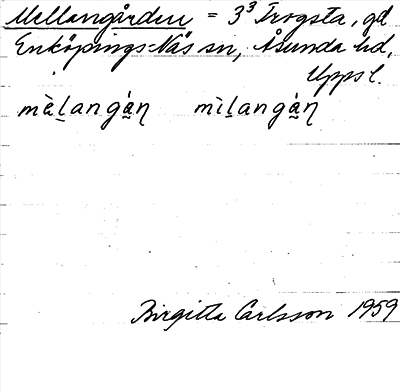 Mellangården = 3³ Trogsta, gd
Enköpings-Näs sn, Åsunda hd,
Upps l.
mèḻangá̰ꞃ mìḻangá̰ꞃ
Birgitta Carlsson 1959